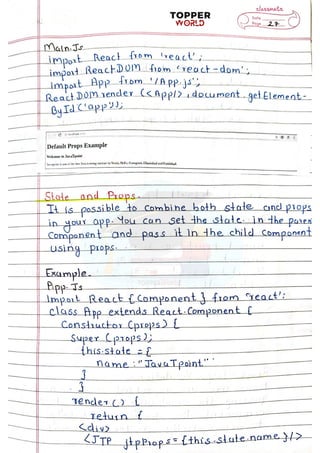 TOPPER
WORLD
classmate
Date
Page 27
Main.Js
import React from 'react';
import ReactDOM from 'react-dom';
import App from './App.js';
ReactDOM.render (<App/>, document.getElement-
ById ('app'));
Default Props Example
Welcome to JavaTpoint
State and Props-
It is possible to combine both state and props
in your app. You can set the state in the paren
component and pass it in the child component
using props.
Example-
App.Js
Import React {Component} from 'react';
class App extends React.Component {
Constructor (props) {
Super (props);
this.state = {
name: "JavaTpoint"
}
}
render () {
return (
<div>
<JTP jtpProps = {this.state.name}/>